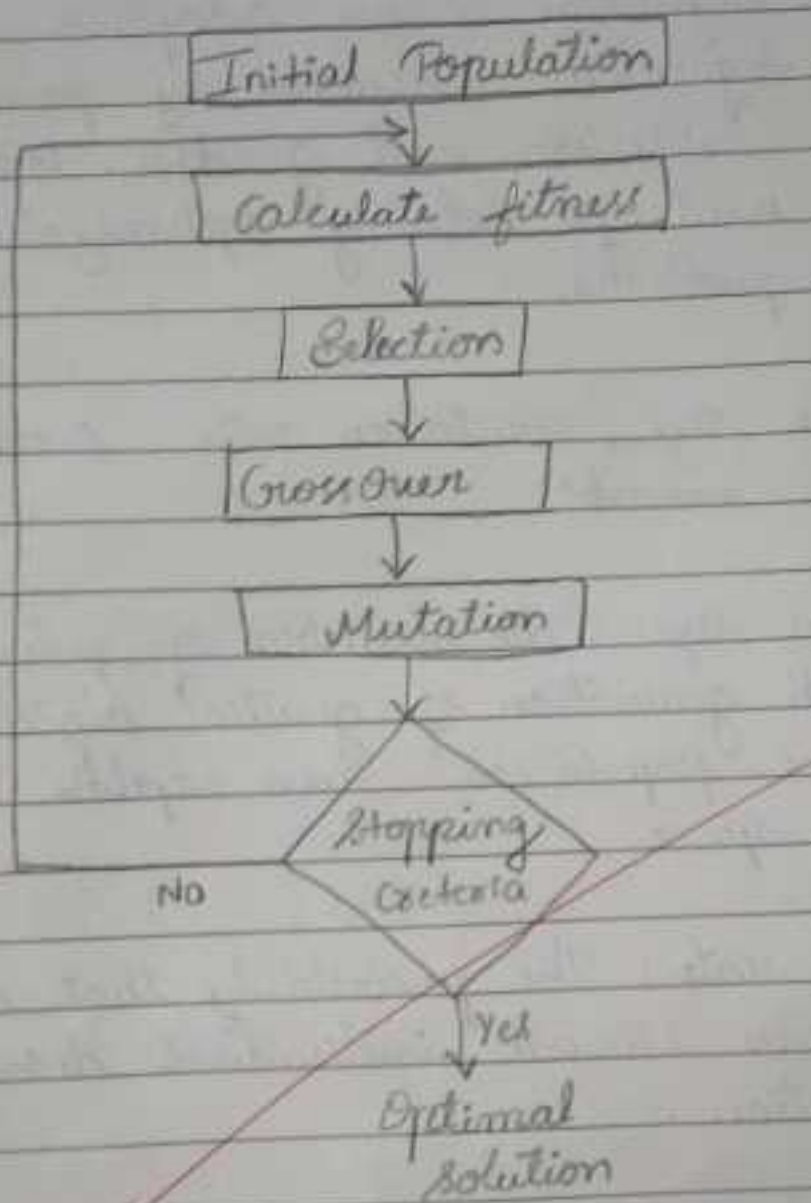 Initial Population
Calculate fitness
Selection
CrossOver
Mutation
Stopping
Creteria
No
Yes
Optimal
solution